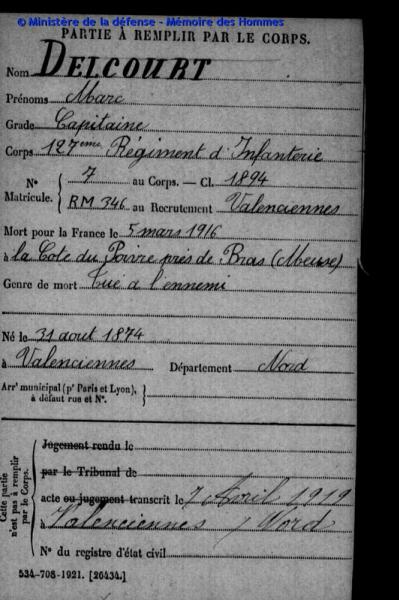 © Ministère de la défense - Mémoire des Hommes
PARTIE À REMPLIR PAR LE CORPS.
Nom DELCOURT
Prénoms Marc
Grade Capitaine
Corps 127eme Régiment d'Infanterie
N° Matricule. { 7 au Corps. — Cl. 1894
RM 346 au Recrutement Valenciennes
Mort pour la France le 5 mars 1916
à la Cote du Poivre près de Bras (Meuse)
Genre de mort Tué à l'ennemi
Né le 31 aout 1874
à Valenciennes Département Nord
Arrt municipal (pr Paris et Lyon), à défaut rue et N°. }
Cette partie n'est pas à remplir par le Corps.
Jugement rendu le
par le Tribunal de
acte ou jugement transcrit le 7 Avril 1919
à Valenciennes / Nord
N° du registre d'état civil
534-708-1921. [26434.]